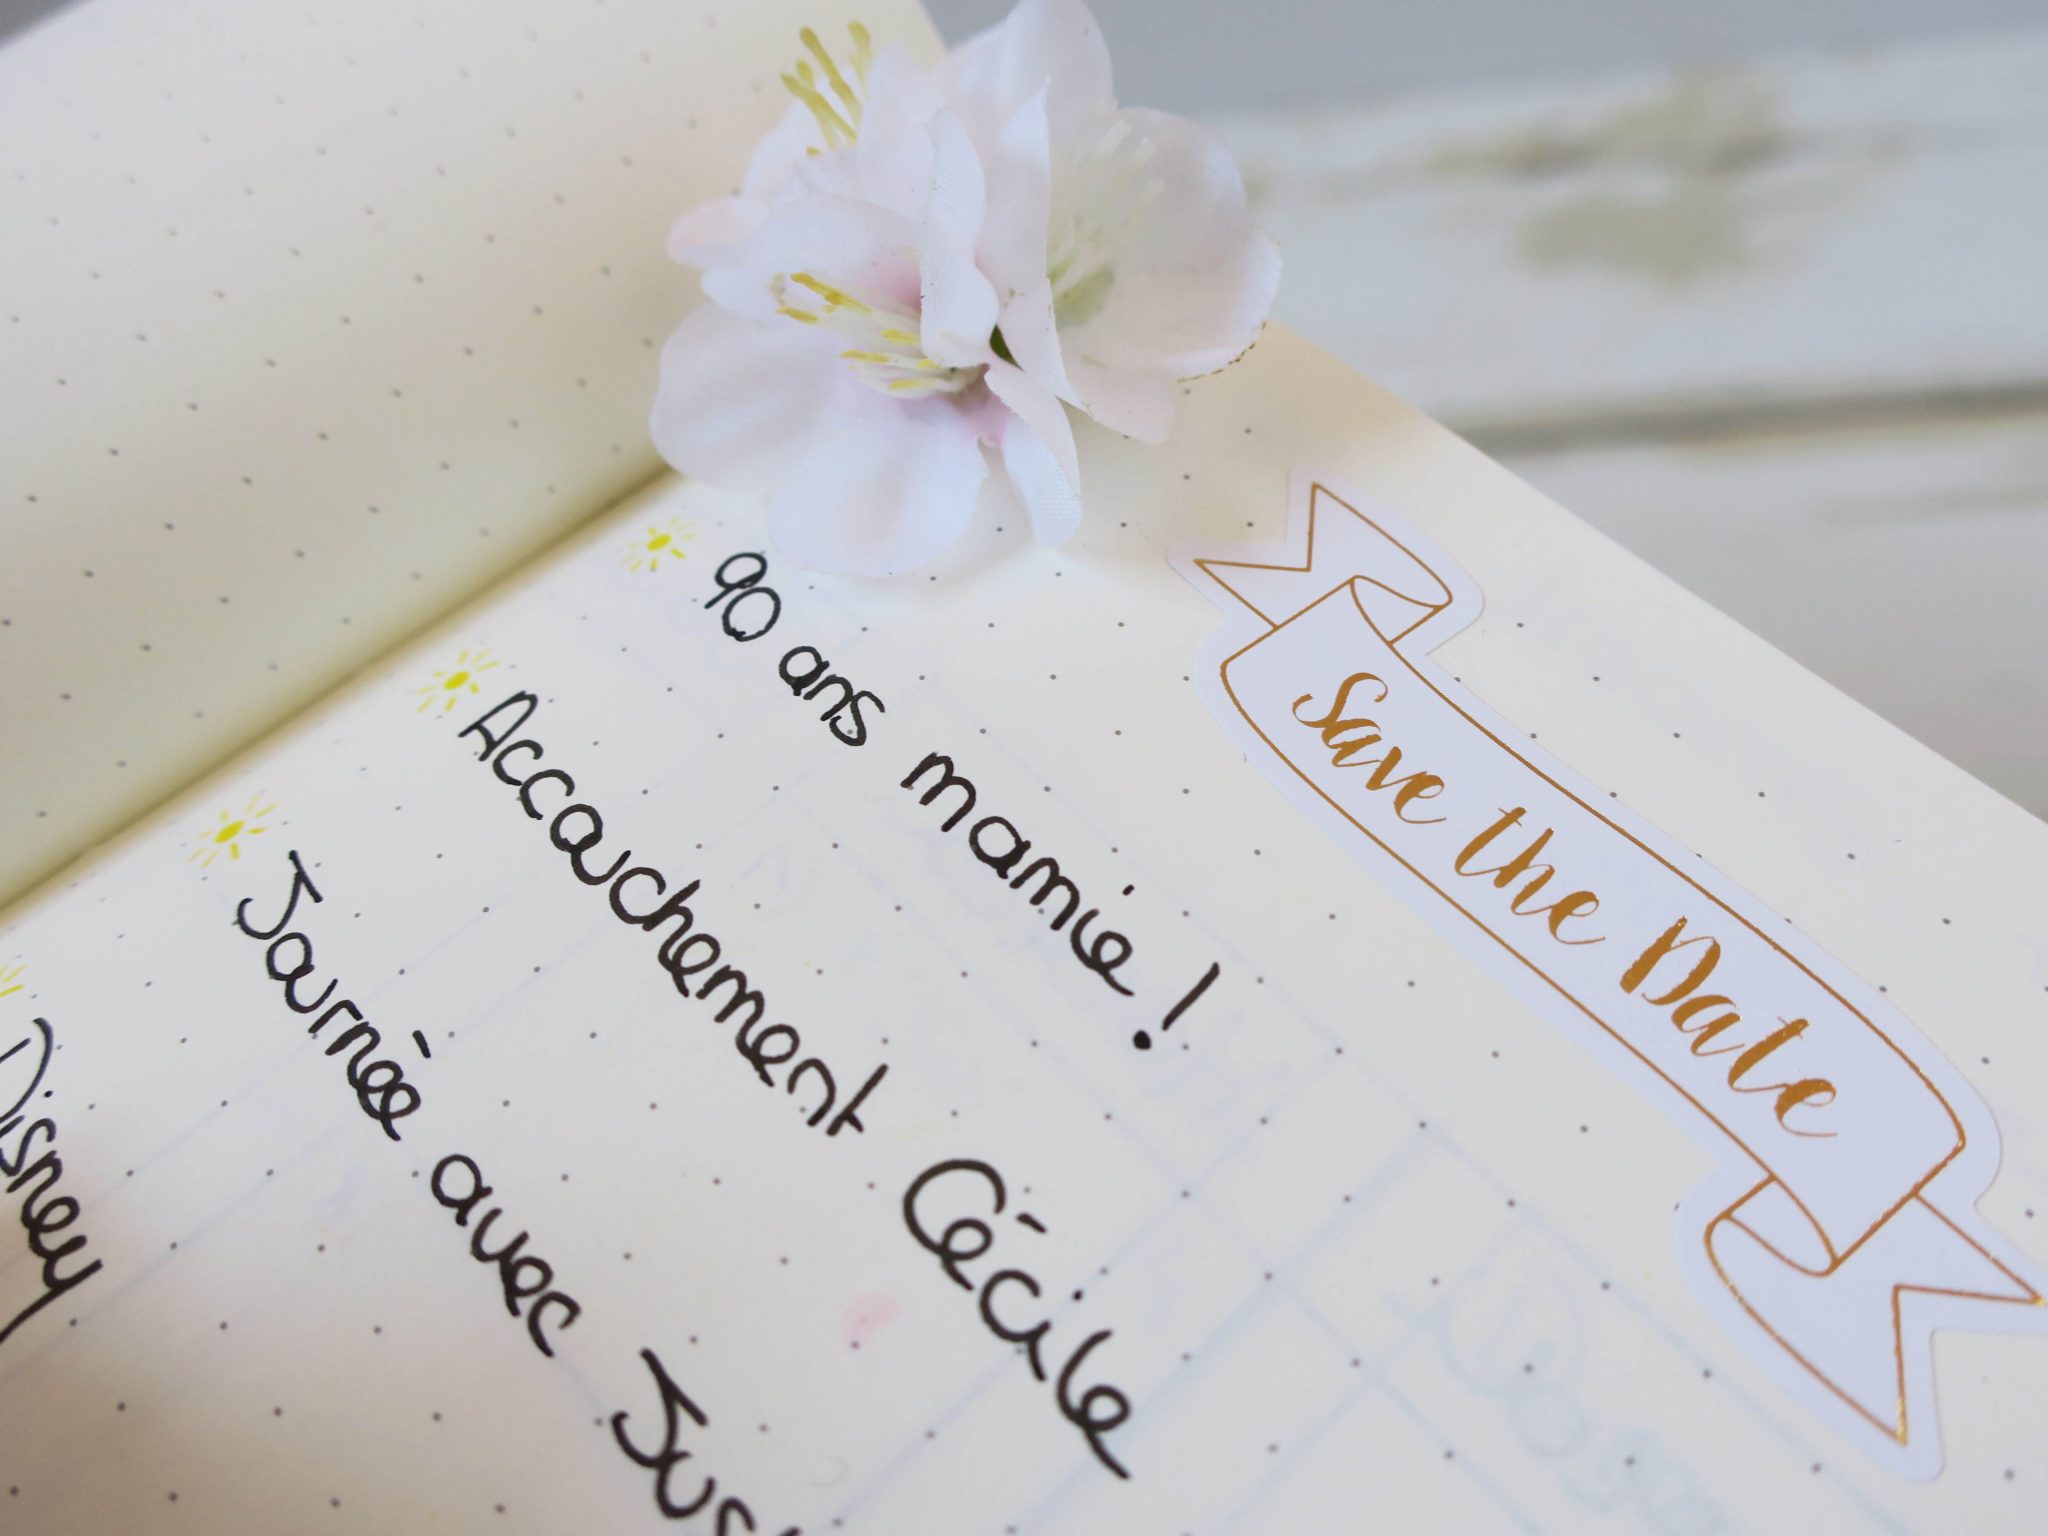 Save the Date
90 ans mamie !
Accouchement Cécile
Journée avec
Disney